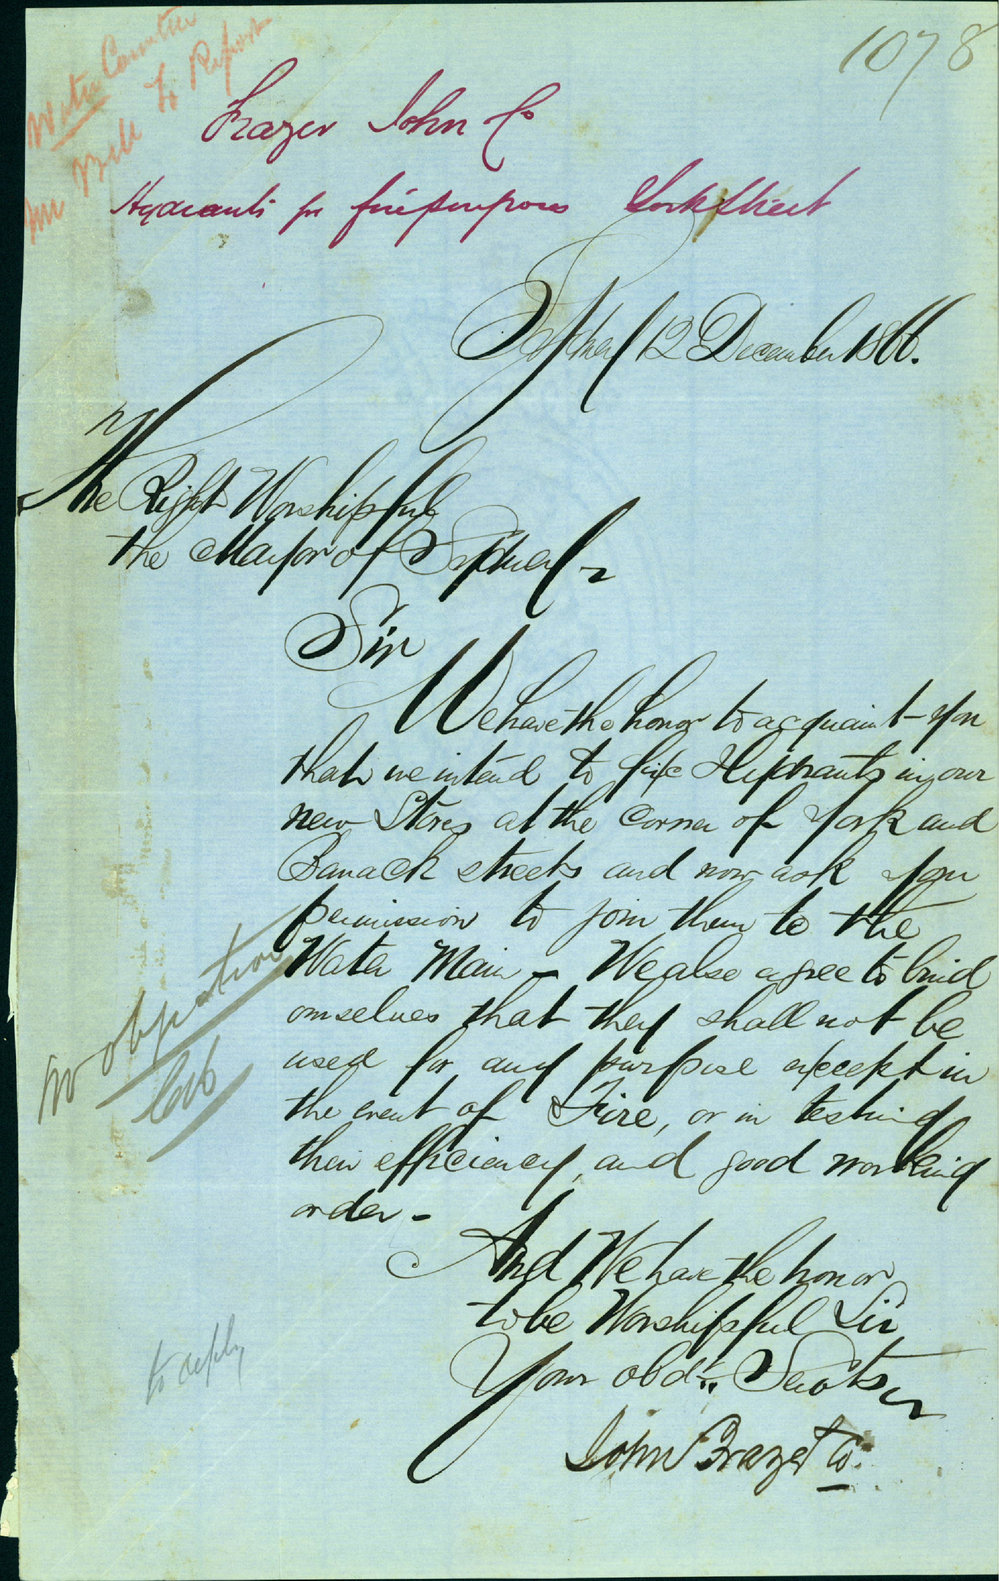 1078
Water Comttee
to Report
Mr Bell
Frazer John Co
Hydrants for fire purposes York Street
Sydney 12 December 1866.
The Right Worshipful
the Mayor of Sydney
Sir
We have the honor to acquaint you
that we intend to fix Hydrants in our
new Stores at the corner of York and
Barrack streets and now ask your
permission to join them to the
Water Main – We also agree to bind
ourselves that they shall not be
used for any purpose except in
the event of Fire, or in testing
their efficiency, and good working
order –
no objection
And We have the honor
to be Worshipful Sir
Your obdt. Servts
John Frazer & Co.
to reply